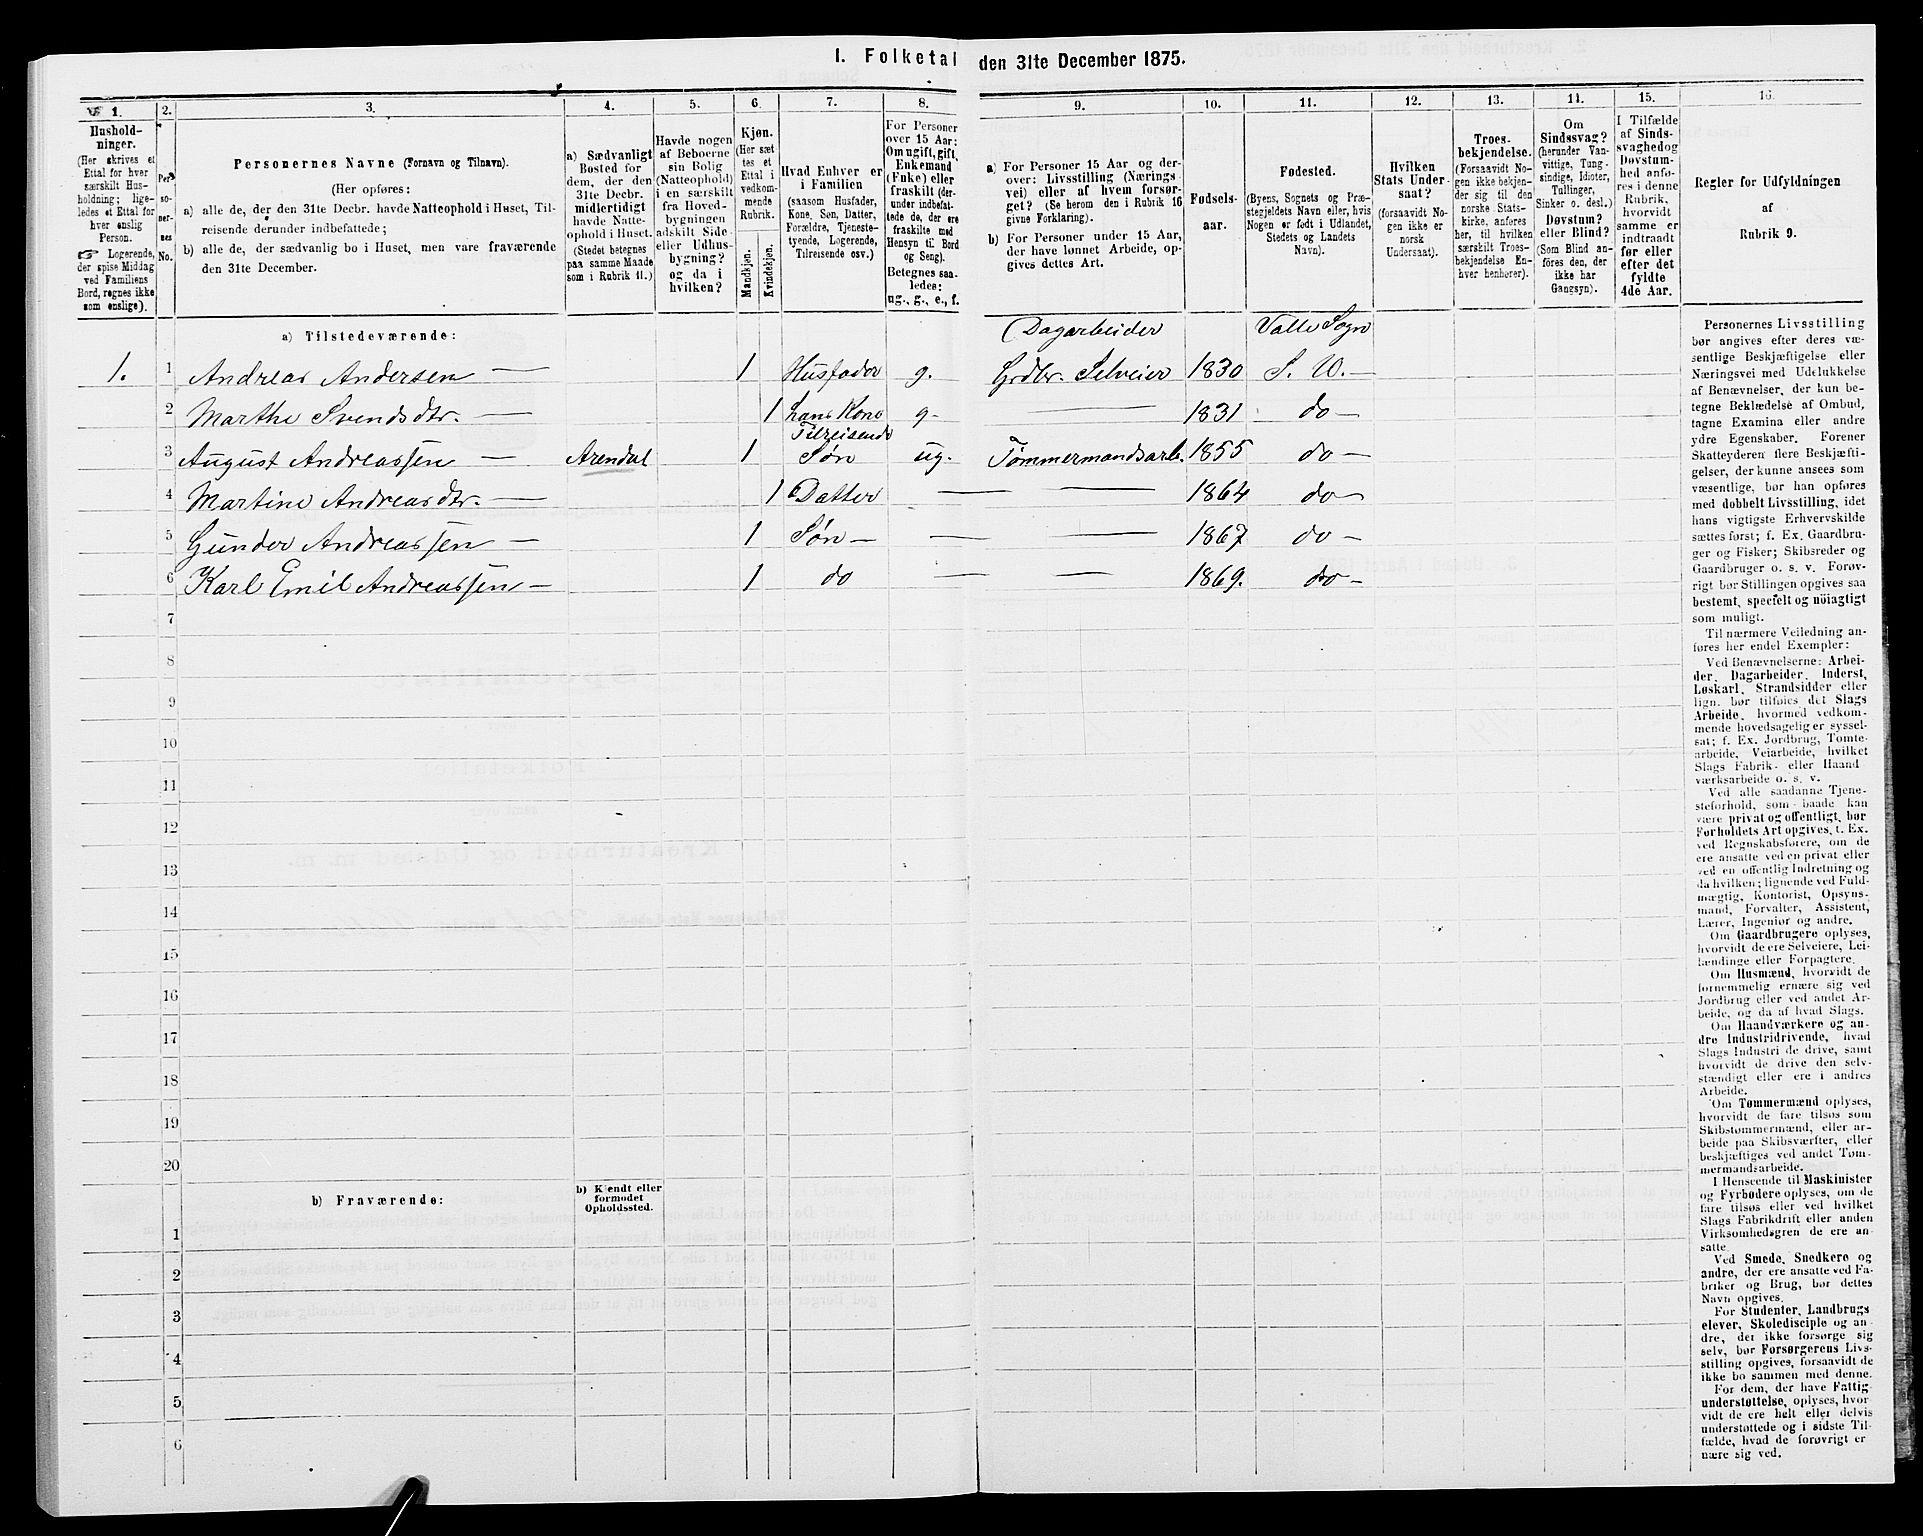 I. Folketal den 31te December 1875.
1.
Hushold-
ninger.
(Her skrives et
Ettal for hver
særskilt Hus-
holdning; lige-
ledes et Ettal for
hver enslig
Person.
☞ Logerende,
der spise Middag
ved Familiens
Bord, regnes ikke
som enslige).
2.
Per-
so-
ner-
nes
No.
3.
Personernes Navne (Fornavn og Tilnavn).
(Her opføres:
a) alle de, der den 31te Decbr. havde Natteophold i Huset, Til-
reisende derunder indbefattede;
b) alle de, der sædvanlig bo i Huset, men vare fraværende
den 31te December.
4.
a) Sædvanligt
Bosted for
dem, der den
31te Decbr.
midlertidigt
havde Natte-
ophold i Huset.
(Stedet betegnes
paa samme Maade
som i Rubrik 11.)
5.
Havde nogen
af Beboerne
sin Bolig
(Natteophold)
i en særskilt
fra Hoved-
bygningen
adskilt Side-
eller Udhus-
bygning?
og da i
hvilken?
6.
Kjøn.
(Her sæt-
tes et
Ettal i
vedkom-
mende
Rubrik.
Mandkjøn.
Kvindekjøn.
7.
Hvad Enhver er
i Familien
(saasom Husfader,
Kone, Søn, Datter,
Forældre, Tjeneste-
tyende, Logerende,
Tilreisende osv.)
8.
For Personer
over 15 Aar:
Om ugift, gift,
Enkemand
(Enke) eller
fraskilt (der-
under indbefat-
tede de, der ere
fraskilte med
Hensyn til Bord
og Seng).
Betegnes saa-
ledes:
ug., g., e., f.
9.
a) For Personer 15 Aar og der-
over: Livsstilling (Nærings-
vei) eller af hvem forsør-
get? (Se herom den i Rubrik 16
givne Forklaring).
b) For Personer under 15 Aar,
der have lønnet Arbeide, op-
gives dettes Art.
10.
Fødsels-
aar.
11.
Fødested.
(Byens, Sognets og Præ-
stegjeldets Navn eller, hvis
Nogen er født i Udlandet,
Stedets og Landets
Navn).
12.
Hvilken
Stats Under-
saat?
(forsaavidt No-
gen ikke er
norsk
Undersaat).
13.
Troes-
bekjendelse.
(Forsaavidt No-
gen ikke bekjen-
der sig til den
norske Stats-
kirke, anføres
her, til hvilken
særskilt Troes-
bekjendelse En-
hver henhører).
14.
Om
Sindssvag?
(herunder Van-
vittige, Tung-
sindige, Idioter,
Tullinger,
Sinker o. desl.)
Døvstum?
eller Blind?
(Som Blind an-
føres den, der
ikke har
Gangsyn).
15.
I Tilfælde
af Sinds-
svaghed og
Døvstum-
hed anfø-
res i denne
Rubrik,
hvorvidt
samme er
indtraadt
før eller
efter det
fyldte
4de Aar.
16.
Regler for Udfyldningen
af
Rubrik 9.
a) Tilstedeværende:
Dagarbeider Valle Sogn
1. 1 Andreas Andersen — 1 Husfader g. Grdbr. Selveier 1830 S. W. —
2 Marthe Svendsdtr. — 1 hans Kone g — 1831 do —
Tilreisende
3 August Andreassen — Arendal 1 Søn ug. Tømmermandsarb. 1855 do —
4 Martine Andreasdtr. — 1 Datter — — 1864 do —
5 Gunder Andreassen — 1 Søn — — — 1867 do —
6 Karl Emil Andreassen — 1 do — — 1869. do —
7
8
9
10
11
12
13
14
15
16
17
18
19
20
b) Fraværende:
b) Kjendt eller
formodet
Opholdssted.
1
2
3
4
5
6
Personernes Livsstilling
bør angives efter deres væ-
sentlige Beskjæftigelse eller
Næringsvei med Udelukkelse
af Benævnelser, der kun be-
tegne Beklædelse af Ombud,
tagne Examina eller andre
ydre Egenskaber. Forener
Skatteyderen flere Beskjæfti-
gelser, der kunne ansees som
væsentlige, bør han opføres
med dobbelt Livsstilling, idet
hans vigtigste Erhvervskilde
sættes først; f. Ex. Gaardbru-
ger og Fisker; Skibsreder og
Gaardbruger o. s. v. Forøv-
rigt bør Stillingen opgives saa
bestemt, specielt og nøiagtigt
som muligt.
Til nærmere Veiledning an-
føres her endel Exempler:
Ved Benævnelserne: Arbei-
der, Dagarbeider, Inderst,
Løskarl, Strandsidder eller
lign. bør tilføies det Slags
Arbeide, hvormed vedkom-
mende hovedsagelig er syssel-
sat; f. Ex. Jordbrug, Tomte-
arbeide, Veiarbeide, hvilket
Slags Fabrik- eller Haand-
værksarbeide o. s. v.
Ved alle saadanne Tjene-
steforhold, som baade kan
være privat og offentligt, bør
Forholdets Art opgives, t. Ex.
ved Regnskabsførere, om de
ere ansatte ved en privat eller
ved en offentlig Indretning og
da hvilken; lignende ved Fuld-
mægtig, Kontorist, Opsyns-
mand, Forvalter, Assistent,
Lærer, Ingeniør og andre.
Om Gaardbrugere oplyses,
hvorvidt de ere Selveiere, Lei-
lændinge eller Forpagtere.
Om Husmænd, hvorvidt de
fornemmelig ernære sig ved
Jordbrug eller ved andet Ar-
beide, og da af hvad Slags.
Om Haandværkere og an-
dre Industridrivende, hvad
Slags Industri de drive, samt
hvorvidt de drive den selv-
stændigt eller ere i andres
Arbeide.
Om Tømmermænd oplyses,
hvorvidt de fare tilsøs som
Skibstømmermænd, eller ar-
beide paa Skibsværfter, eller
beskjæftiges ved andet Tøm-
mermandsarbeide.
I Henseende til Maskinister
og Fyrbødere oplyses, om de
fare tilsøs eller ved hvilket
Slags Fabrikdrift eller anden
Virksomhedsgren de ere an-
satte.
Ved Smede, Snedkere og
andre, der ere ansatte ved Fa-
briker og Brug, bør dettes
Navn opgives.
For Studenter, Landbrugs-
elever, Skoledisciple og an-
dre, der ikke forsørge sig
selv, bør Forsørgerens Livs-
stilling opgives, forsaavidt de
ikke bo sammen med denne.
For dem, der have Fattig-
understøttelse, oplyses, hvor-
vidt de ere helt eller delvis
understøttede og i sidste Til-
fælde, hvad de forøvrigt er-
nære sig ved.